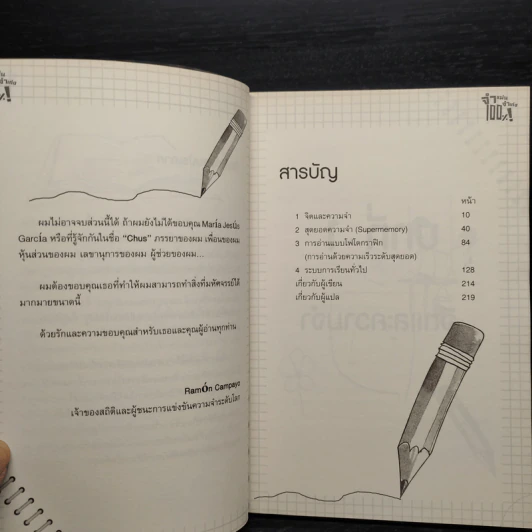 ผมไม่อาจจบส่วนนี้ได้ ถ้าผมยังไม่ได้ขอบคุณ María Jesús
García หรือที่รู้จักกันในชื่อ "Chus" ภรรยาของผม เพื่อนของผม
หุ้นส่วนของผม เลขานุการของผม ผู้ช่วยของผม...
ผมต้องขอบคุณเธอที่ทำให้ผมสามารถทำสิ่งที่มหัศจรรย์ได้
มากมายขนาดนี้
ด้วยรักและความขอบคุณสำหรับเธอและคุณผู้อ่านทุกท่าน
Ramón Campayo
เจ้าของสถิติและผู้ชนะการแข่งขันความจำระดับโลก
จำแม่น
จำนาน
100%!
สารบัญ
หน้า
1 จิตและความจำ 10
2 สุดยอดความจำ (Supermemory) 40
3 การอ่านแบบโฟโตกราฟิก 84
(การอ่านด้วยความเร็วระดับสุดยอด)
4 ระบบการเรียนทั่วไป 128
เกี่ยวกับผู้เขียน 214
เกี่ยวกับผู้แปล 219